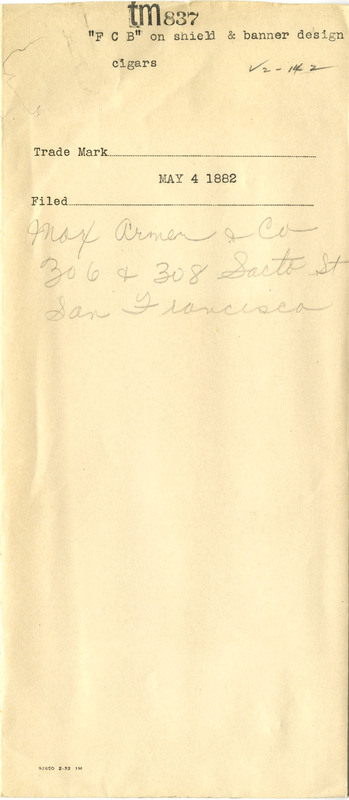 tm837
"F C B" on shield & banner design
cigars
V2-142
Trade Mark
MAY 4 1882
Filed
Max Armer & Co
306 & 308 Sacto St
San Francisco
92600 2-32 1M